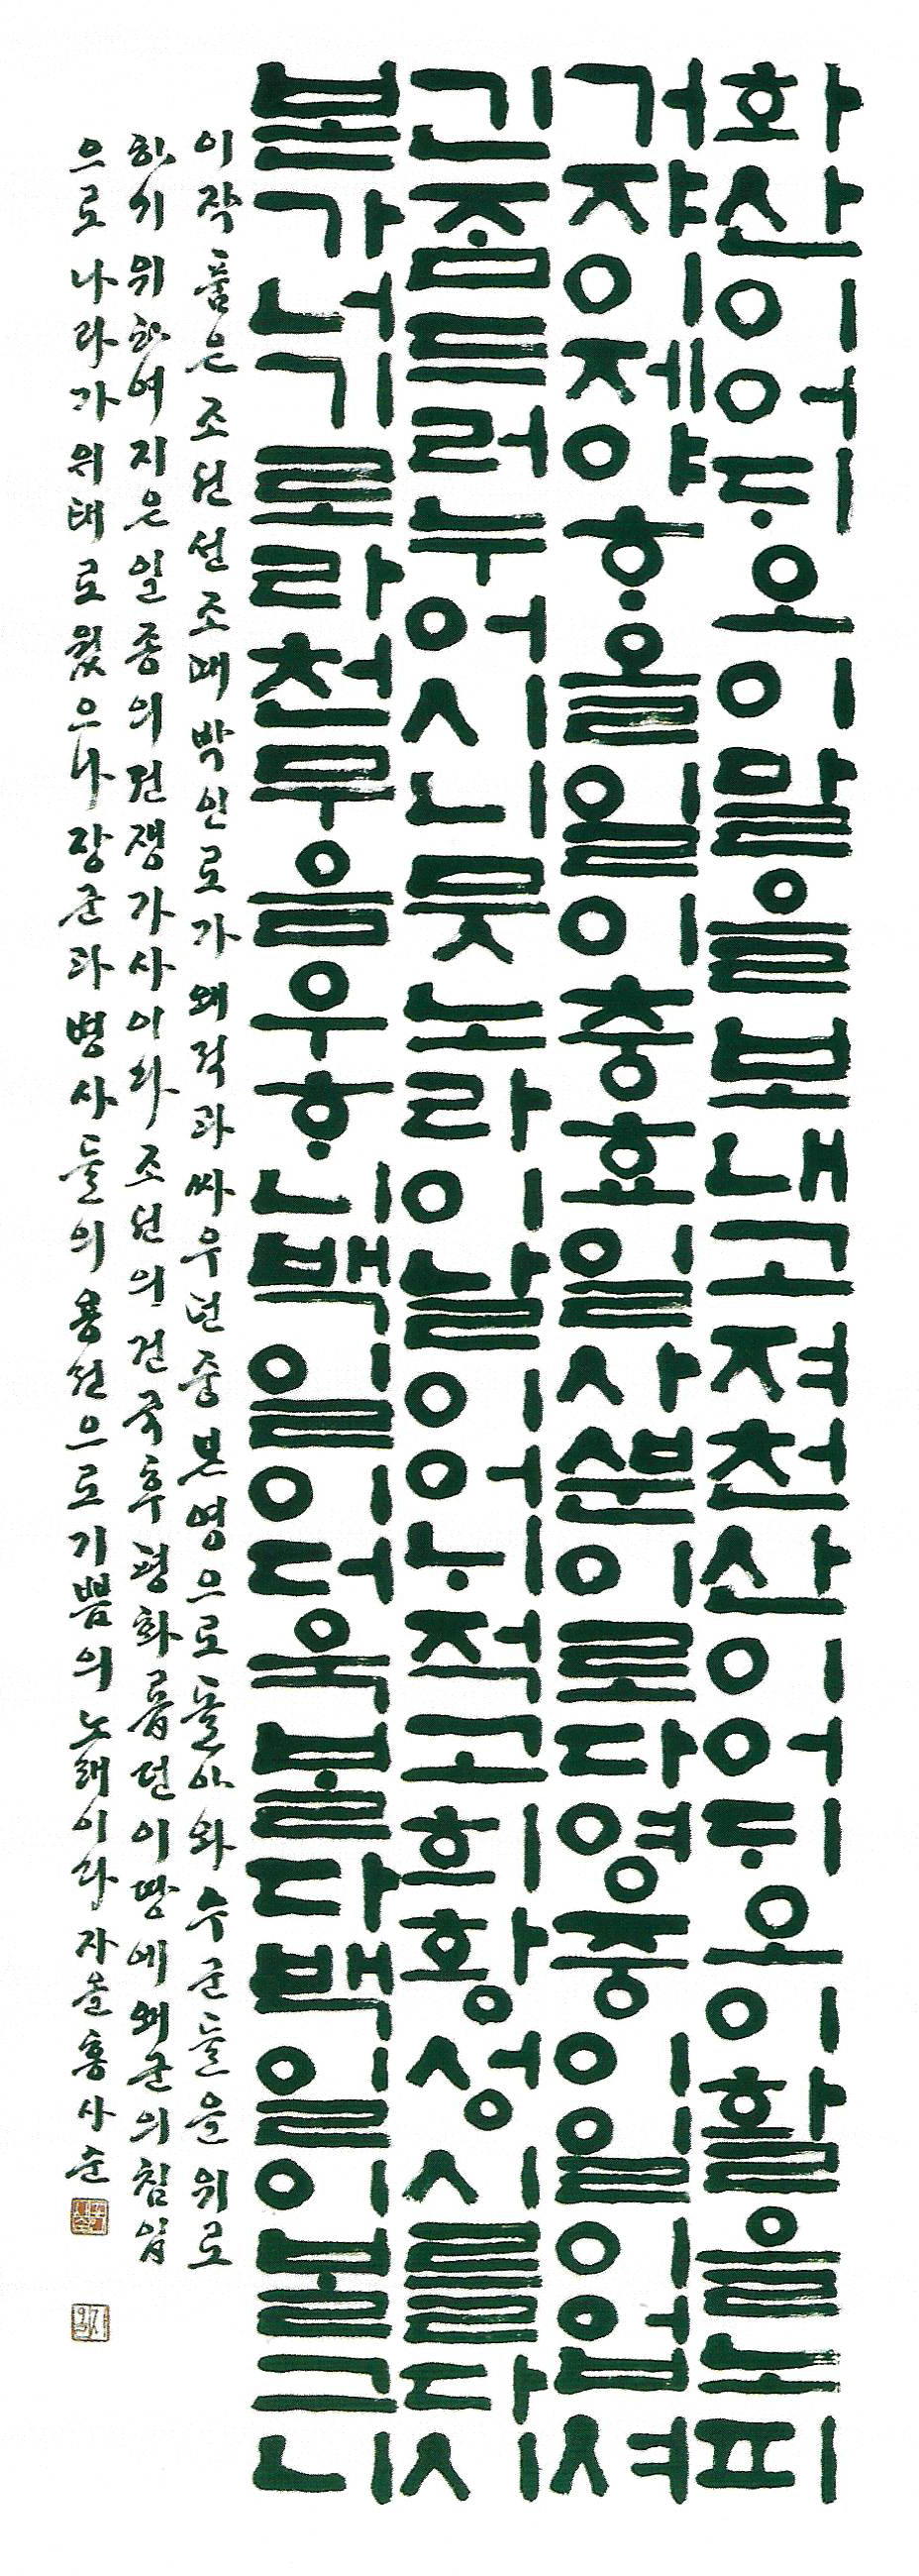 화산이어ᄃᆡ오이말을보내고져천산이어ᄃᆡ오이활을노피
거쟈이제야ᄒᆞ올일이충효일사ᄲᅮᆫ이로다영중이일이업셔
긴ᄌᆞᆷ드러누어시니뭇노라이날이어ᄂᆡ적고희황성시를다시
본가너기로라천무음우ᄒᆞ니백일이더욱ᄇᆞᆯ다백일이ᄇᆞᆯ그니
이작품은조선선조때박인로가왜적과싸우던중본영으로돌아와수군들을위로
하기위하여지은일종의전쟁가사이라조선의건국후평화롭던이땅에왜군의침입
으로나라가위태로웠으나장군과병사들의용전으로기쁨의노래이라자운홍사순